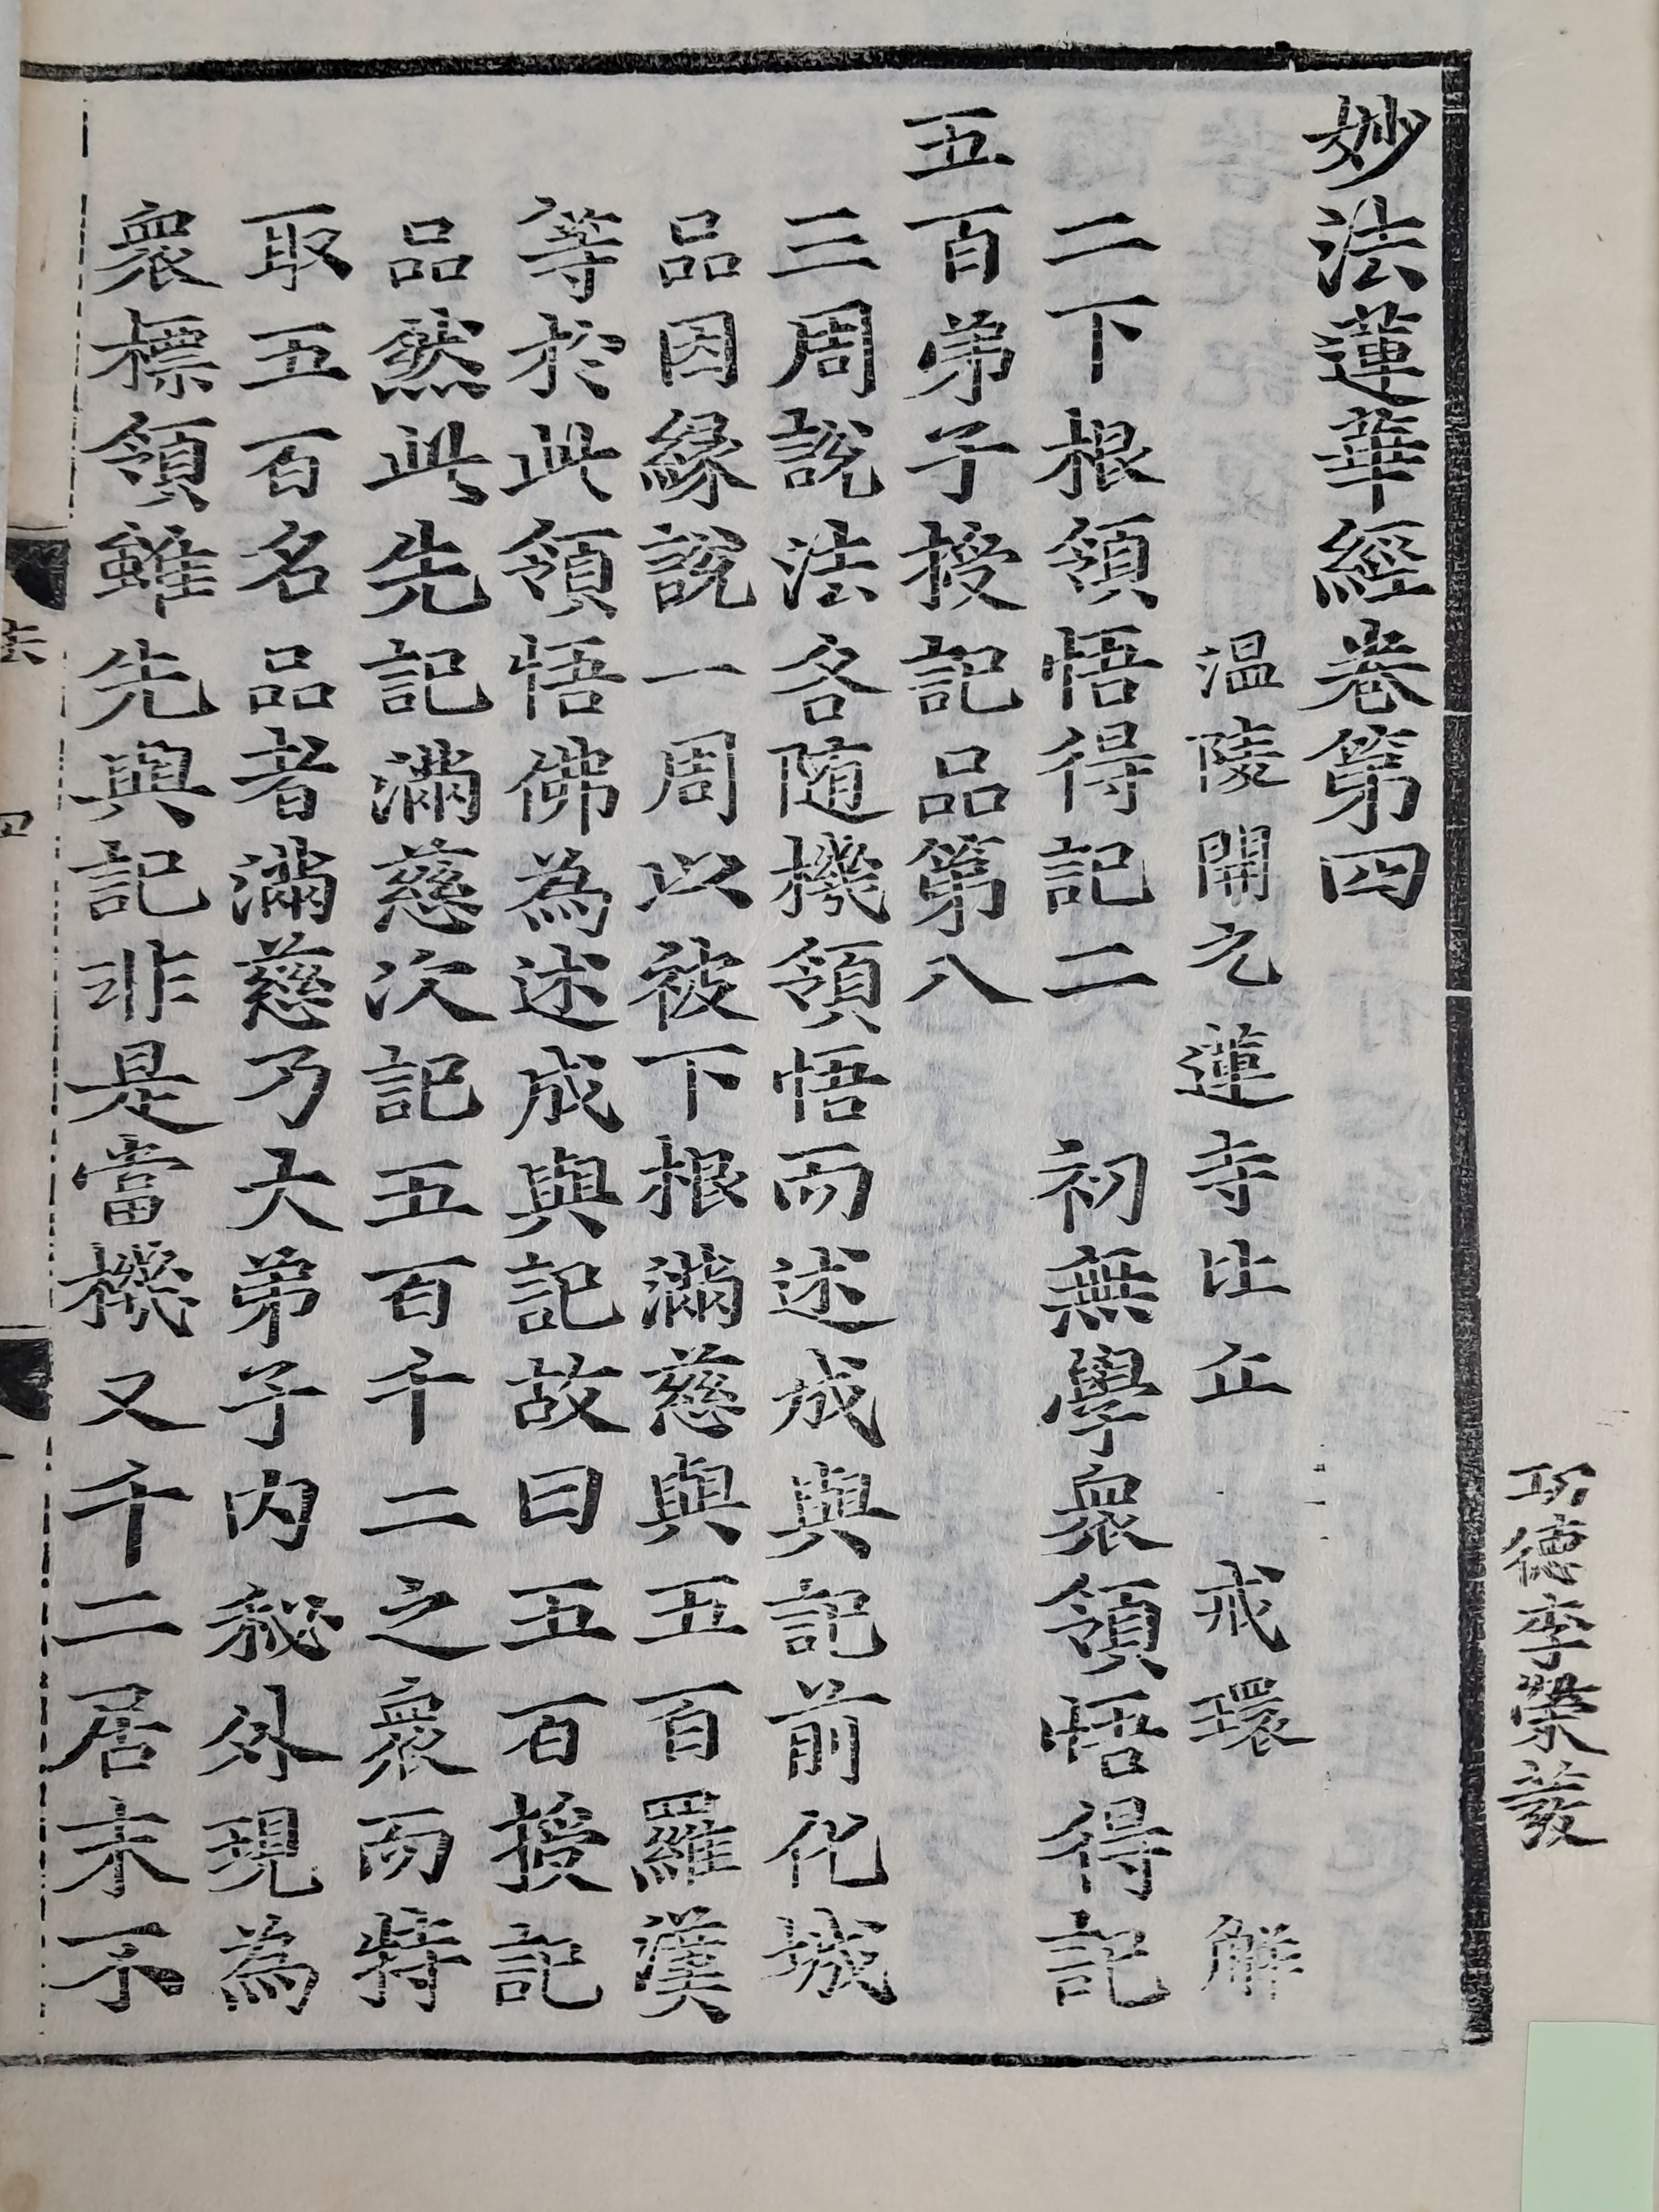 妙法蓮華經卷第四
溫陵開元蓮寺比丘 戒環 解
二下根領悟得記二 初無學衆領悟得記
五百弟子授記品第八
三周說法各随機領悟而述成與記前化城
品因緣說一周以被下根滿慈與五百羅漢
等於此領悟佛為述成與記故曰五百授記
品然此先記滿慈次記五百千二之衆而特
取五百名品者滿慈乃大弟子內祕外現為
衆標領雖先與記非是當機又千二居末不
功德李榮